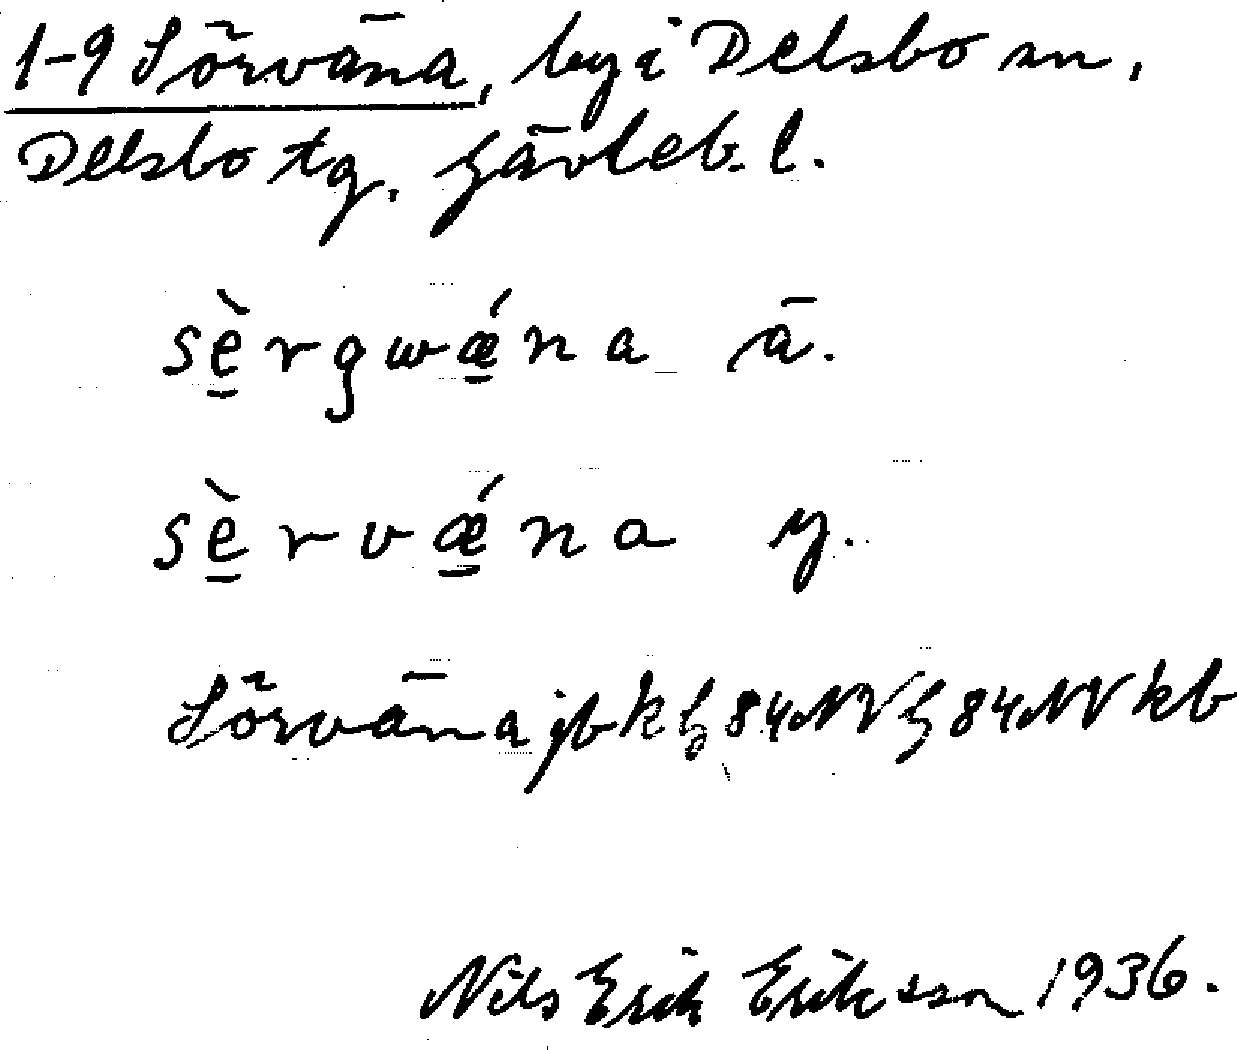 1-9 Sörväna, by i Delsbo sn,
Delsbo tg. Gävleb. l.
sè̱rgwǽ̱na ä.
sè̱rvǽ̱na y.
Sörväna jbk h 84 NV h 84 NV kb
Nils Erik Eriksson 1936.